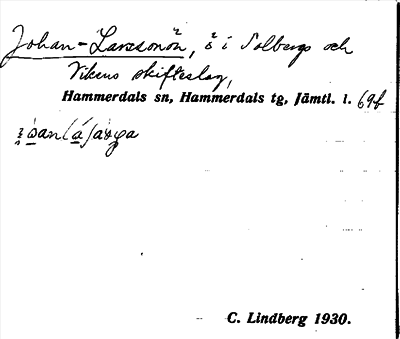 Johan-Larssonön, ö i Solbergs och
Vikens skifteslag,
Hammerdals sn, Hammerdals tg, Jämtl. l. 69f
C. Lindberg 1930.